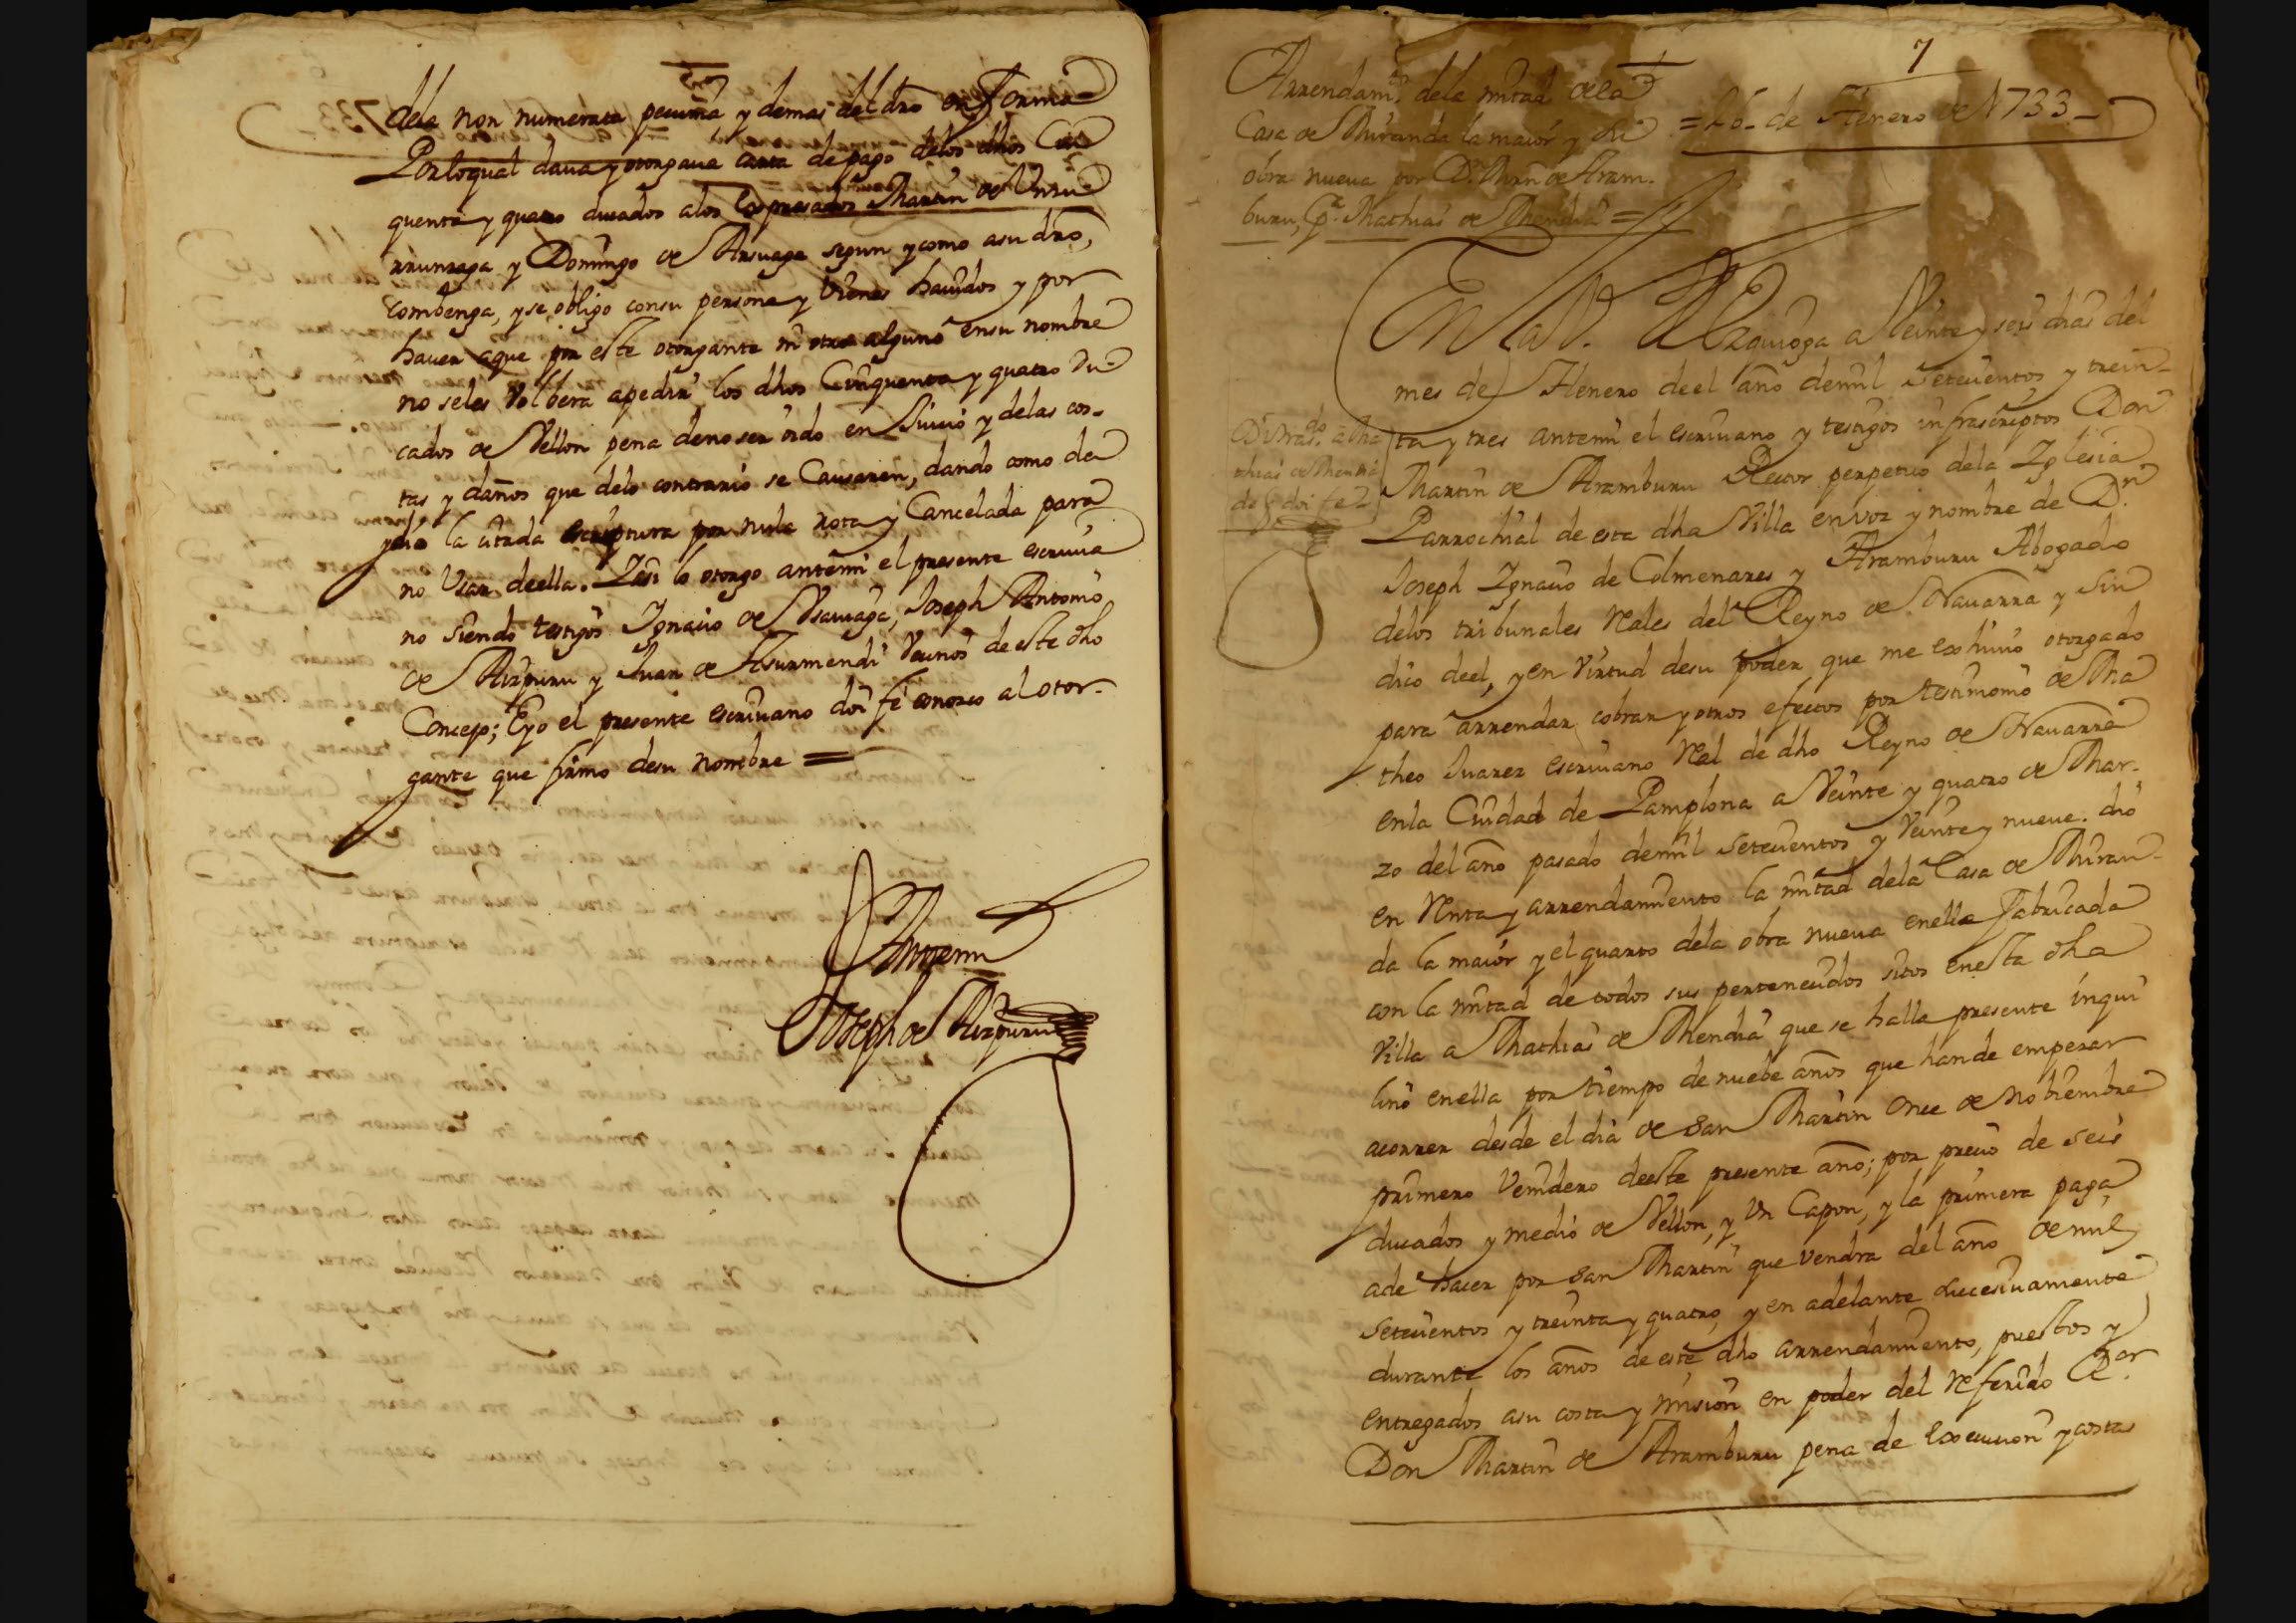 dela non numerata pecunia y demas del dro en forma
Porloqual daua y otorgaua carta de pago delos dhos Cin
quenta y quatro ducados alos Expresados Martin de Vrru
rrunzaga y Domingo de Arsuaga segun y como asu dro,
Combenga, y se obligo consu persona y Vienes hauidos y por
hauer aque por este otorgante ni otro alguno ensu nombre
no seles Volbera apedir los dhos Cinquenta y quatro Du-
cados de Vellon pena deno ser oido en Juicio y delas cos-
tas y daños que delo contrario se Causaren, dando como da
ydio la citada escriptura por nula rota y Cancelada para
no Vsar deella. Yasi lo otorgo antemi el presente escriua
no siendo testigos Ignacio de Vsauiaga, Joseph Antonio
de Aizpuru y Juan de Asurmendi Vecinos de este dho
Concejo; Eyo el presente escriuano doi fe conozco al otor-
gante que firmo desu nombre =
Antemi
Joseph de Aizpuru
7
Arrendamto. dela mitad dela
Casa de Miranda la maior y su
obra nueva por Dn. Mrn de Aram-
buru, Pa. Mathias de Mendia =
= 26- de Henero de 1733-
En la V. de Azquoga a Veinte y seis dias del
mes de Henero deel año demil Setecientos y trein-
ta y tres antemi el escriuano y testigos infrascriptos Don
Martin de Aramburu Rector perpetuo dela Iglesia
Parrochial de esta dha Villa envoz y nombre de Dn.
Joseph Ignacio de Colmenares y Aramburu Abogado
delos tribunales Reales del Reyno de Nauarra y Sin
dico deel, y en Virtud desu poder que me exhiuio otorgado
para arrendar cobrar y otros efectos por testimonio de Ma
theo Suarez escriuano Real de dho Reyno de Nauarra
enla Ciudad de Pamplona a Veinte y quatro de Mar-
zo del año pasado demil setecientos y Veinte y nueue. dio
en Renta y arrendamiento la mitad dela Casa de Miran-
da la maior y el quarto dela obra nueua enella Fabricada
con la mitad de todos sus pertenecidos sitos enesta dha
Villa a Mathias de Mendia que se halla presente inqui
lino enella por tiempo de nuebe años que hande empezar
acorrer desde el dia de San Martin Once de Nobiembre
primero Venidero deeste presente año; por precio de seis
ducados y medio de Vellon, y Vn Capon, y la primera paga
ade hacer por San Martin que Vendra del año de mil
Setecientos y treinta y quatro, y en adelante sucesiuamente
durante los años de este dho arrendamiento, puestos y
entregados asu costa y mision en poder del Referido Ror.
Don Martin de Aramburu pena de Execucion y costas
Di trasdo. a Ma
thias de Mendia
de q doi fe